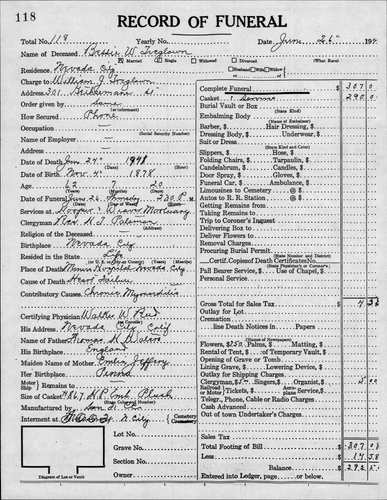 118
RECORD OF FUNERAL
Total No. 118 Yearly No. Date June 26" 194
Name of Deceased Bessie W. Treglown
Married Single Widowed Divorced
Residence Nevada City
Husband Wife Widow of
Charge to William J. Treglown
Address 301
Order given by Same
How Secured Phone
Occupation
(Social Security Number)
Name of Employer
Address
Date of Death June 24" 1948
Date of Birth Nov. 4" 1878
Age
(Years) (Months) (Days)
Date of Funeral June 26 2:30 P.M.
Services at Hooper & Weaver Mortuary
Clergyman Rev. H. J. Palmer
(Address)
Religion of the Deceased
Birthplace Nevada City
Resided in the State Life
Place of Death Miners Hospital Nevada City
Cause of Death Heart Failure
Contributory Causes Chronic Myocarditis
Certifying Physician Walter W. Reid
His Address Nevada City Calif
Name of Father Thomas H. Waters
His Birthplace England
Maiden Name of Mother Emblin Jeffery
Her Birthplace
Motor Ship Remains to
Size of Casket Plush
Manufactured by
Interment at N. City
Cemetery Crematory
Lot No.
Grave No.
Section No.
Owner
Diagram of Lot or Vault
Complete Funeral $ 307.0
Casket & Service 290.00
Burial Vault or Box
(State Kind)
Embalming Body
Barber, $ Hair Dressing, $
Dressing Body, $ Underwear, $
Suit or Dress
(State Kind and Color)
Slippers, $ Hose, $
Folding Chairs, $ Tarpaulin, $
Candelabrum, $ Candles, $
Door Spray, $ Gloves, $
Funeral Car, $ Ambulance, $
Limousines to Cemetery @ $
Autos to R. R. Station @ $
Getting Remains from
Taking Remains to
Trip to Coroner's Inquest
Delivering Box to
Deliver Flowers to
Removal Charges
Procuring Burial Permit
(State Number and District)
Certif. Copies of Death Certificates No.
(State Physician's or Coroner's)
Pall Bearer Service, $ Use of Chapel, $
Personal Service
Gross Total for Sales Tax $
Outlay for Lot
Cremation
line Death Notices in Papers
(Names of Newspapers)
Flowers, $ Palms, $ Matting, $
Rental of Tent, $ of Temporary Vault, $
Opening of Grave or Tomb
Lining Grave, $ Lowering Device, $
Outlay for Shipping Charges
Clergyman, $ Singers, $ Organist, $ 5.00
Railroad Motor Tickets, $ Aeroplane Service, $
Telegr., Phone, Cable or Radio Charges
Cash Advanced
Out of town Undertaker's Charges
Sales Tax
Total Footing of Bill $ 307.08
Less
Balance $
Entered into Ledger, page or below.